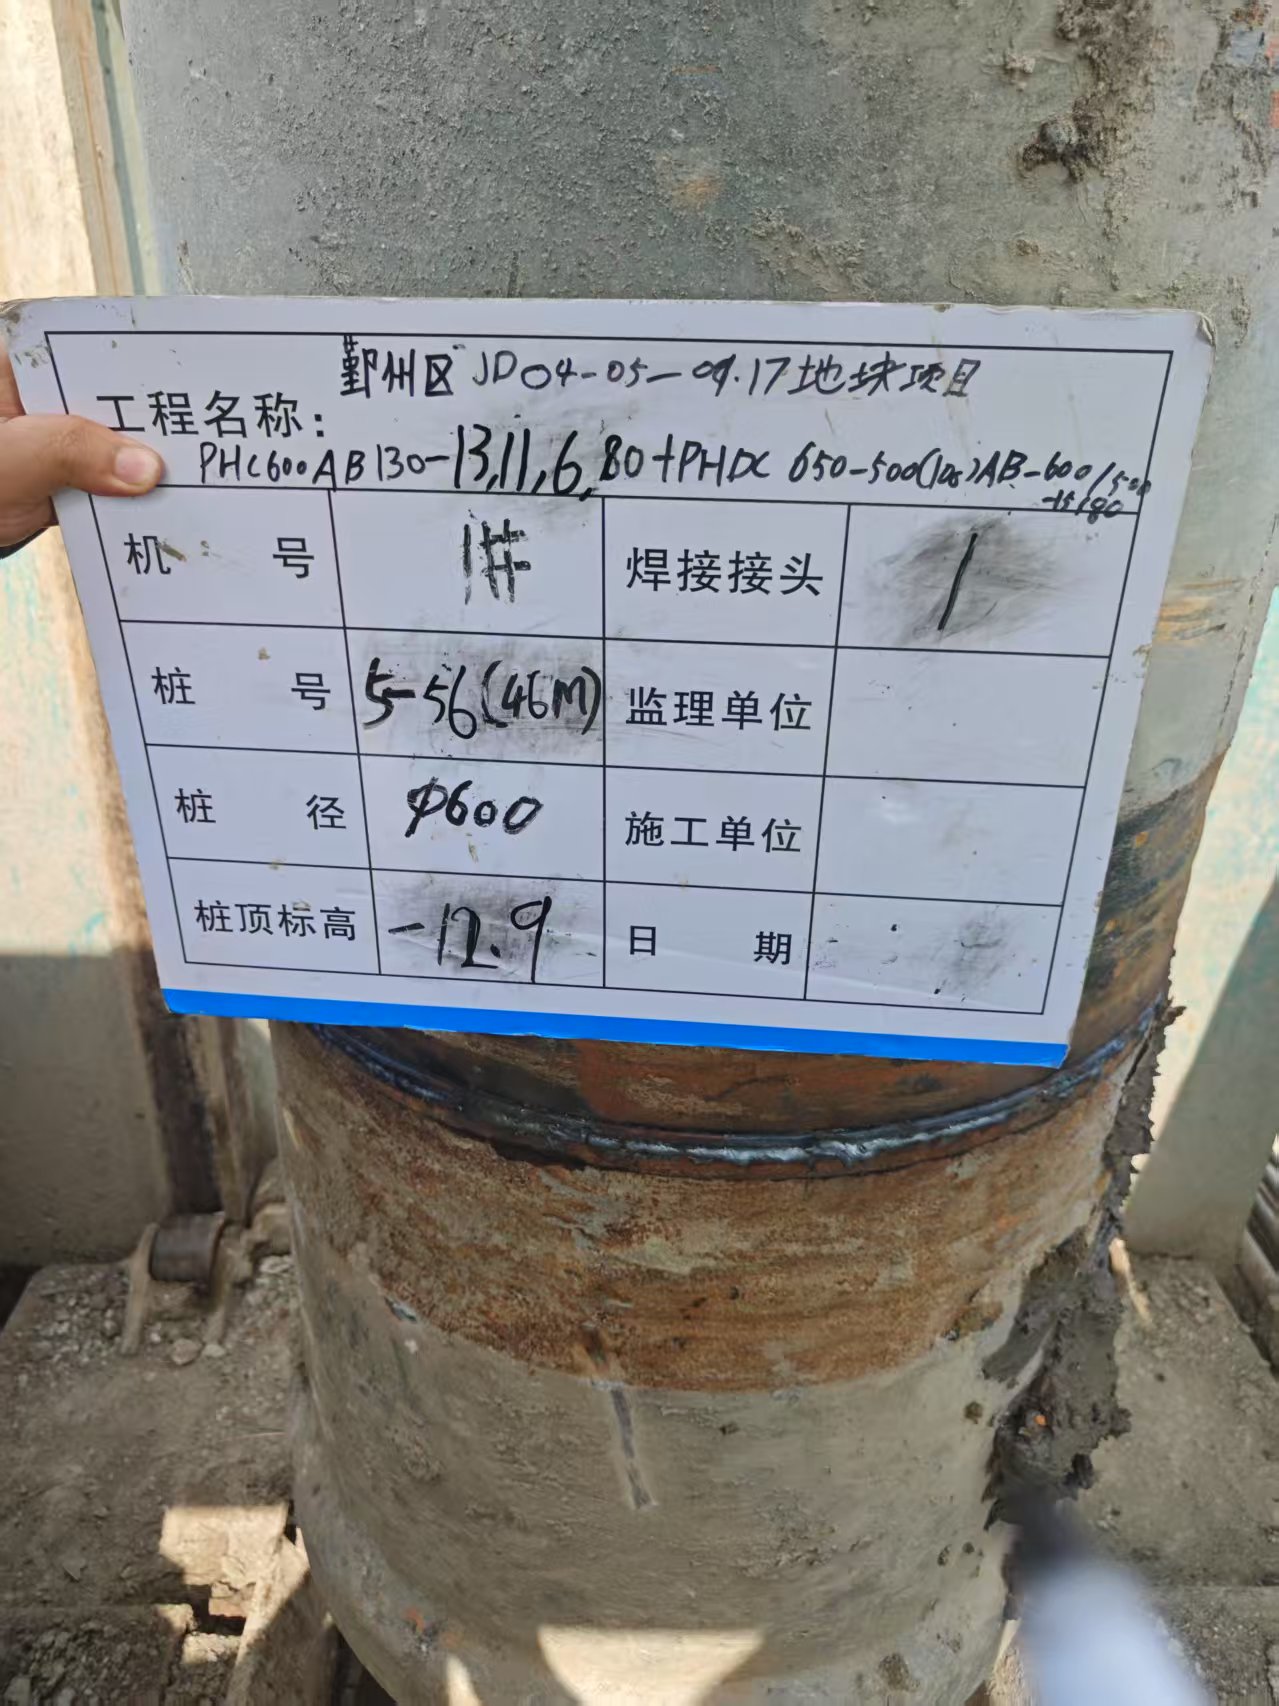 鄞州区JD04-05-09.17地块项目
工程名称：
PHC600AB130-13,11,6,80+PHDC 650-500(105)AB-600/500
-15/80
机号 1# 焊接接头 1
桩号 5-56(46M) 监理单位
桩径 φ600 施工单位
桩顶标高 -12.9 日期